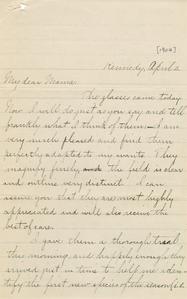 [1904]
Kennedy, April 2
My dear Mama:
The glasses came today.
Now I will do just as you say and tell
frankly what I think of them - I am
very much pleased and find them
perfectly adapted to my wants. They
magnify finely, the field is clear
and outlines very distinct. I can
assure you that they are most highly
appreciated and will also receive the
best of care.
I gave them a thorough trial,
this morning, and happily enough they
arrived just in time to help me iden-
tify the first new species of the season, (a